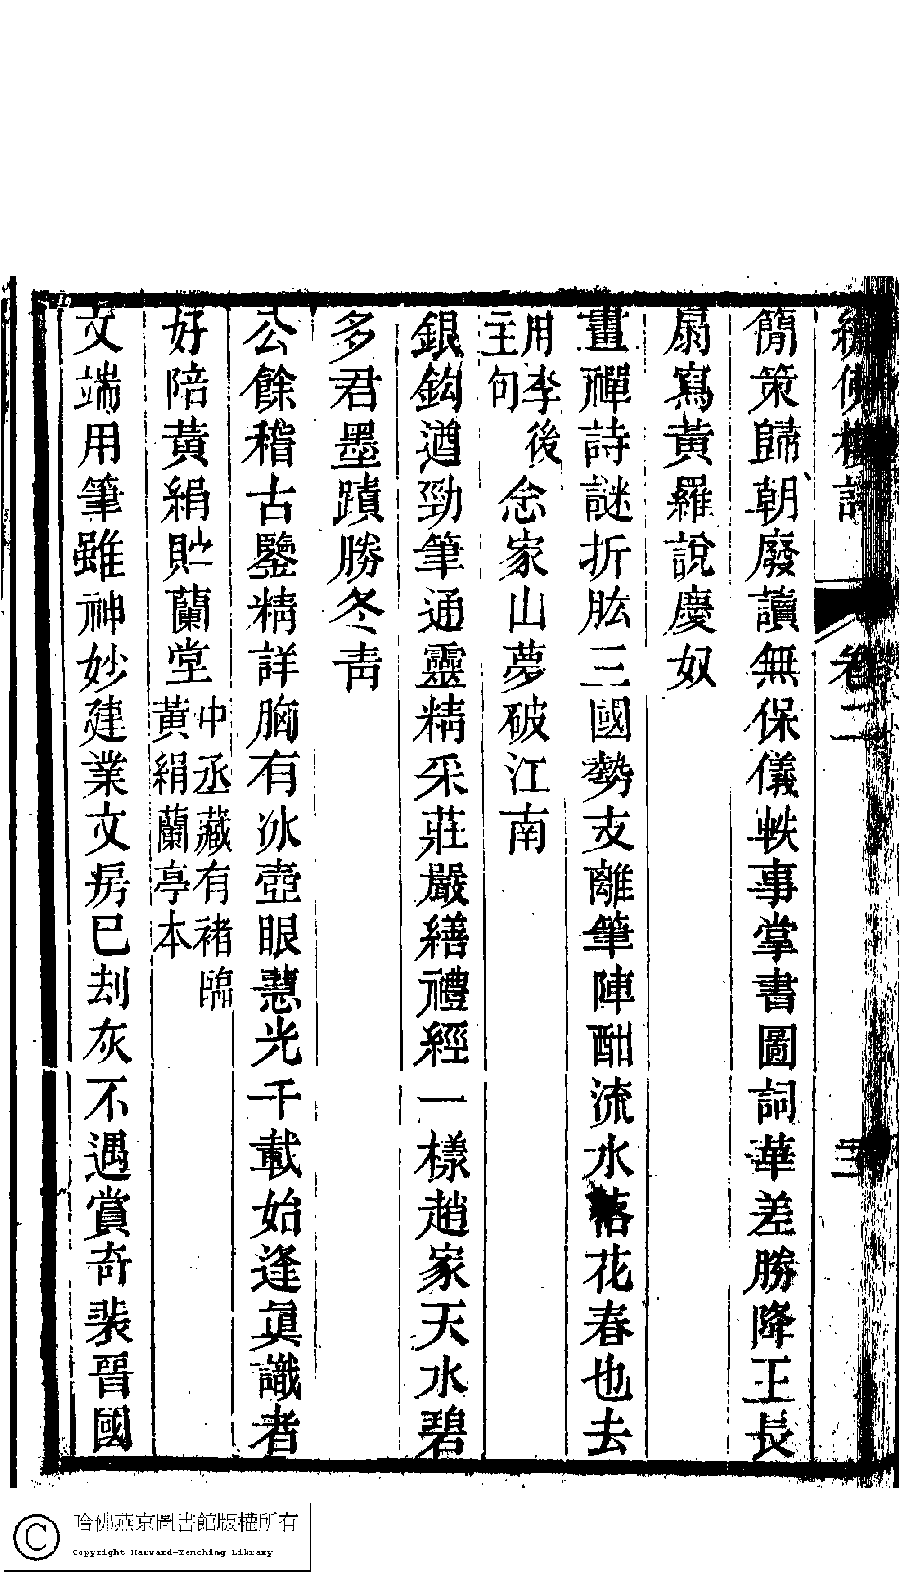 繡佛樓詩 卷二 三
簡策歸朝廢讀無保儀軼事掌書圖詞華差勝降王長
扇寫黃羅說慶奴
畫禪詩謎折肱三國勢支離筆陣酣流水落花春也去
用李後主句念家山夢破江南
銀鈎遒勁筆通靈精采莊嚴繕禮經一樣趙家天水碧
多君墨蹟勝冬靑
公餘稽古鑒精詳胸有冰壺眼慧光千載始逢眞識者
好陪黃絹貯蘭堂中丞藏有褚臨黃絹蘭亭本
文端用筆雖神妙建業文房已刦灰不遇賞奇裴晉國
哈佛燕京圖書館版權所有
Copyright Harvard-Yenching Library